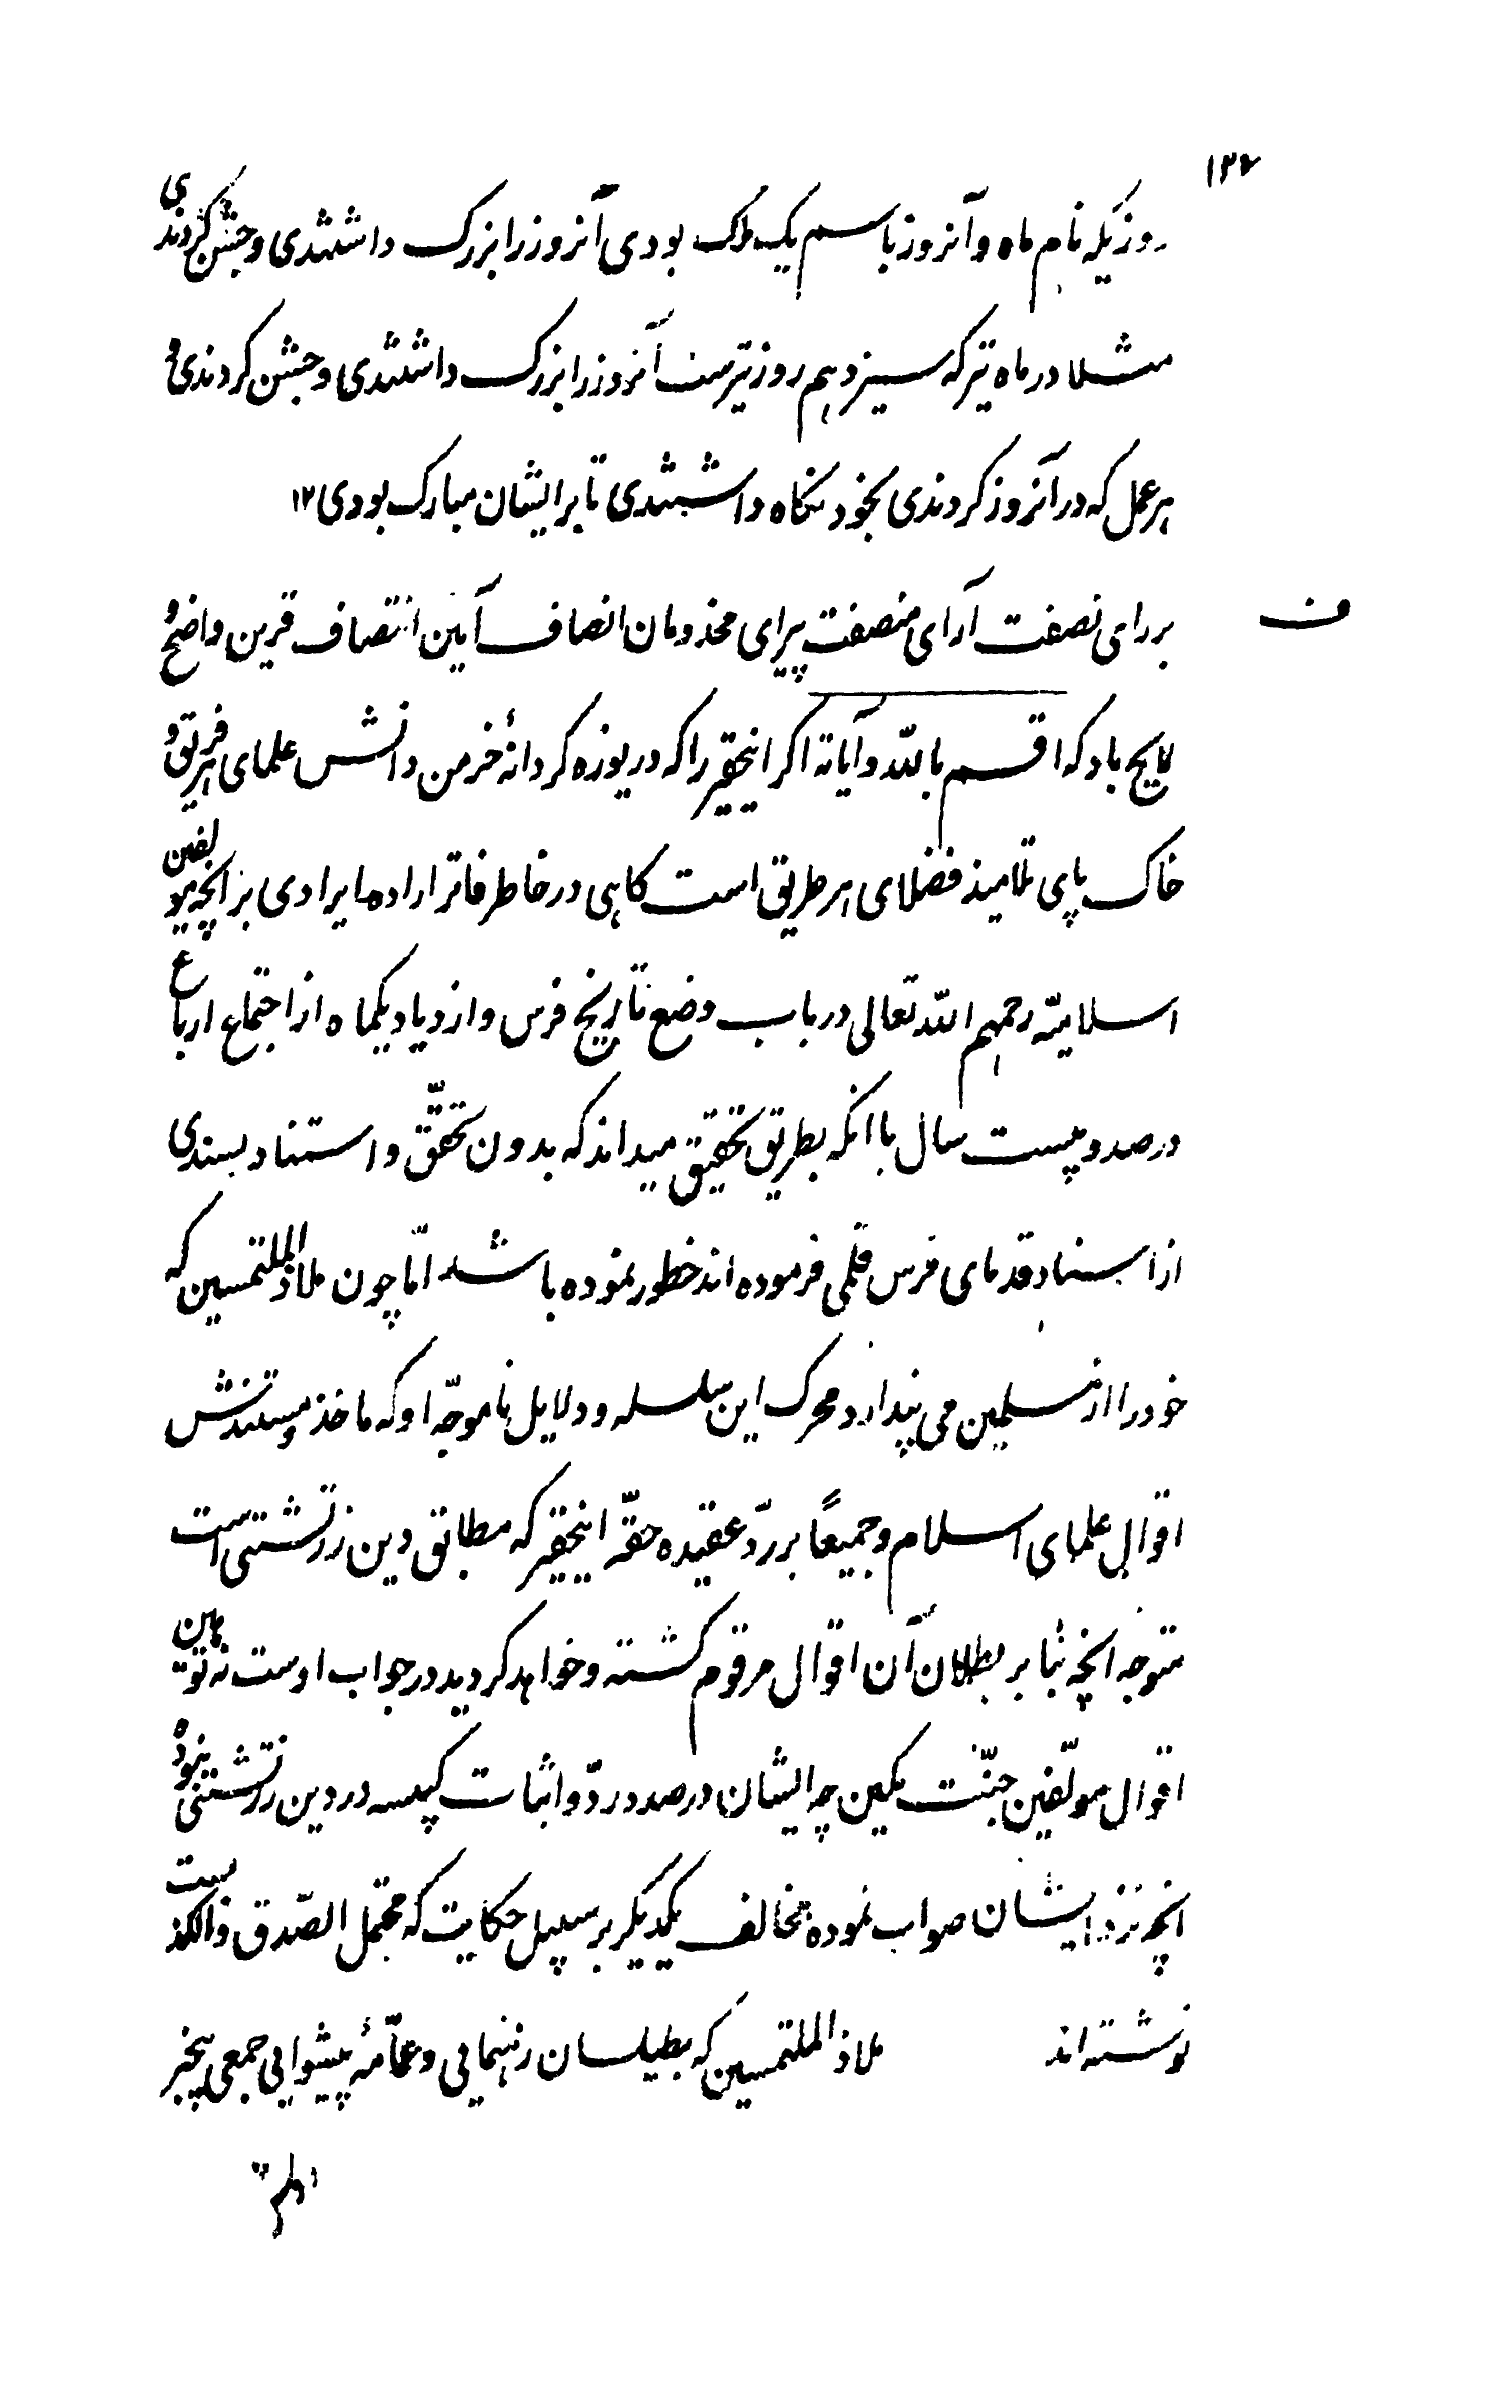 ۱۳۶
روزیکه نام ماه و آنروز باسم یک ملک بودی آنروز را بزرک داشتندی و جشن کردندی
مثلا در ماه تیر که سیزدهم روز تیرست آنروز را بزرک داشتندی و جشن کردندی و
هر عمل که در آنروز کردندی بخود نکاه داشتندی تا بر ایشان مبارک بودی ۱۲
ف
بر رای نصفت آرای منصفت پیرای مخدومان انصاف آیین انتصاف قرین واضح و
لایح باد که اقسم بالله و آیاته اکر اینحقیر را که دریوزه کر دانهٔ خرمن دانش علمای هر فریق و
خاک پای تلامیذ فضلای هر طریق است کاهی در خاطر فاتر اراده ایرادی بر انچه مولفین
اسلامیّه رحمهم الله تعالی در باب وضع تاریخ فرس و ازدیاد یکماه از اجتماع ارباع
در صد و بیست سال با انکه بطریق تحقیق میداند که بدون تحقّق و استناد بسندی
از اسناد قدمای فرس قلمی فرموده اند خطور نموده باشد امّا چون ملاذ الملتمسین که
خود را از مسلمین می پندارد محرک این سلسله و دلایل ناموجّه او که ماخذ و مستندش
اقوال علمای اسلام و جمیعًا بر ردّ عقیده حقّه اینحقیر که مطابق دین زرتشتی است
متوجه انچه بنا بر بطلان آن اقوال مرقوم کشته و خواهد کردید در جواب اوست نه توهین
اقوال مولّفین جنّت مکین چه ایشان در صدد ردّ و اثبات کبیسه در دین زرتشتی نبوده
انچه نزد ایشان صواب نموده مخالف یکدیکر بر سبیل حکایت که محتمل الصّدق و الکذبست
نوشته اند ملاذ الملتمسین که بطیلسان رهنمایی و عمامّهٔ پیشوایی جمعی بیخبر